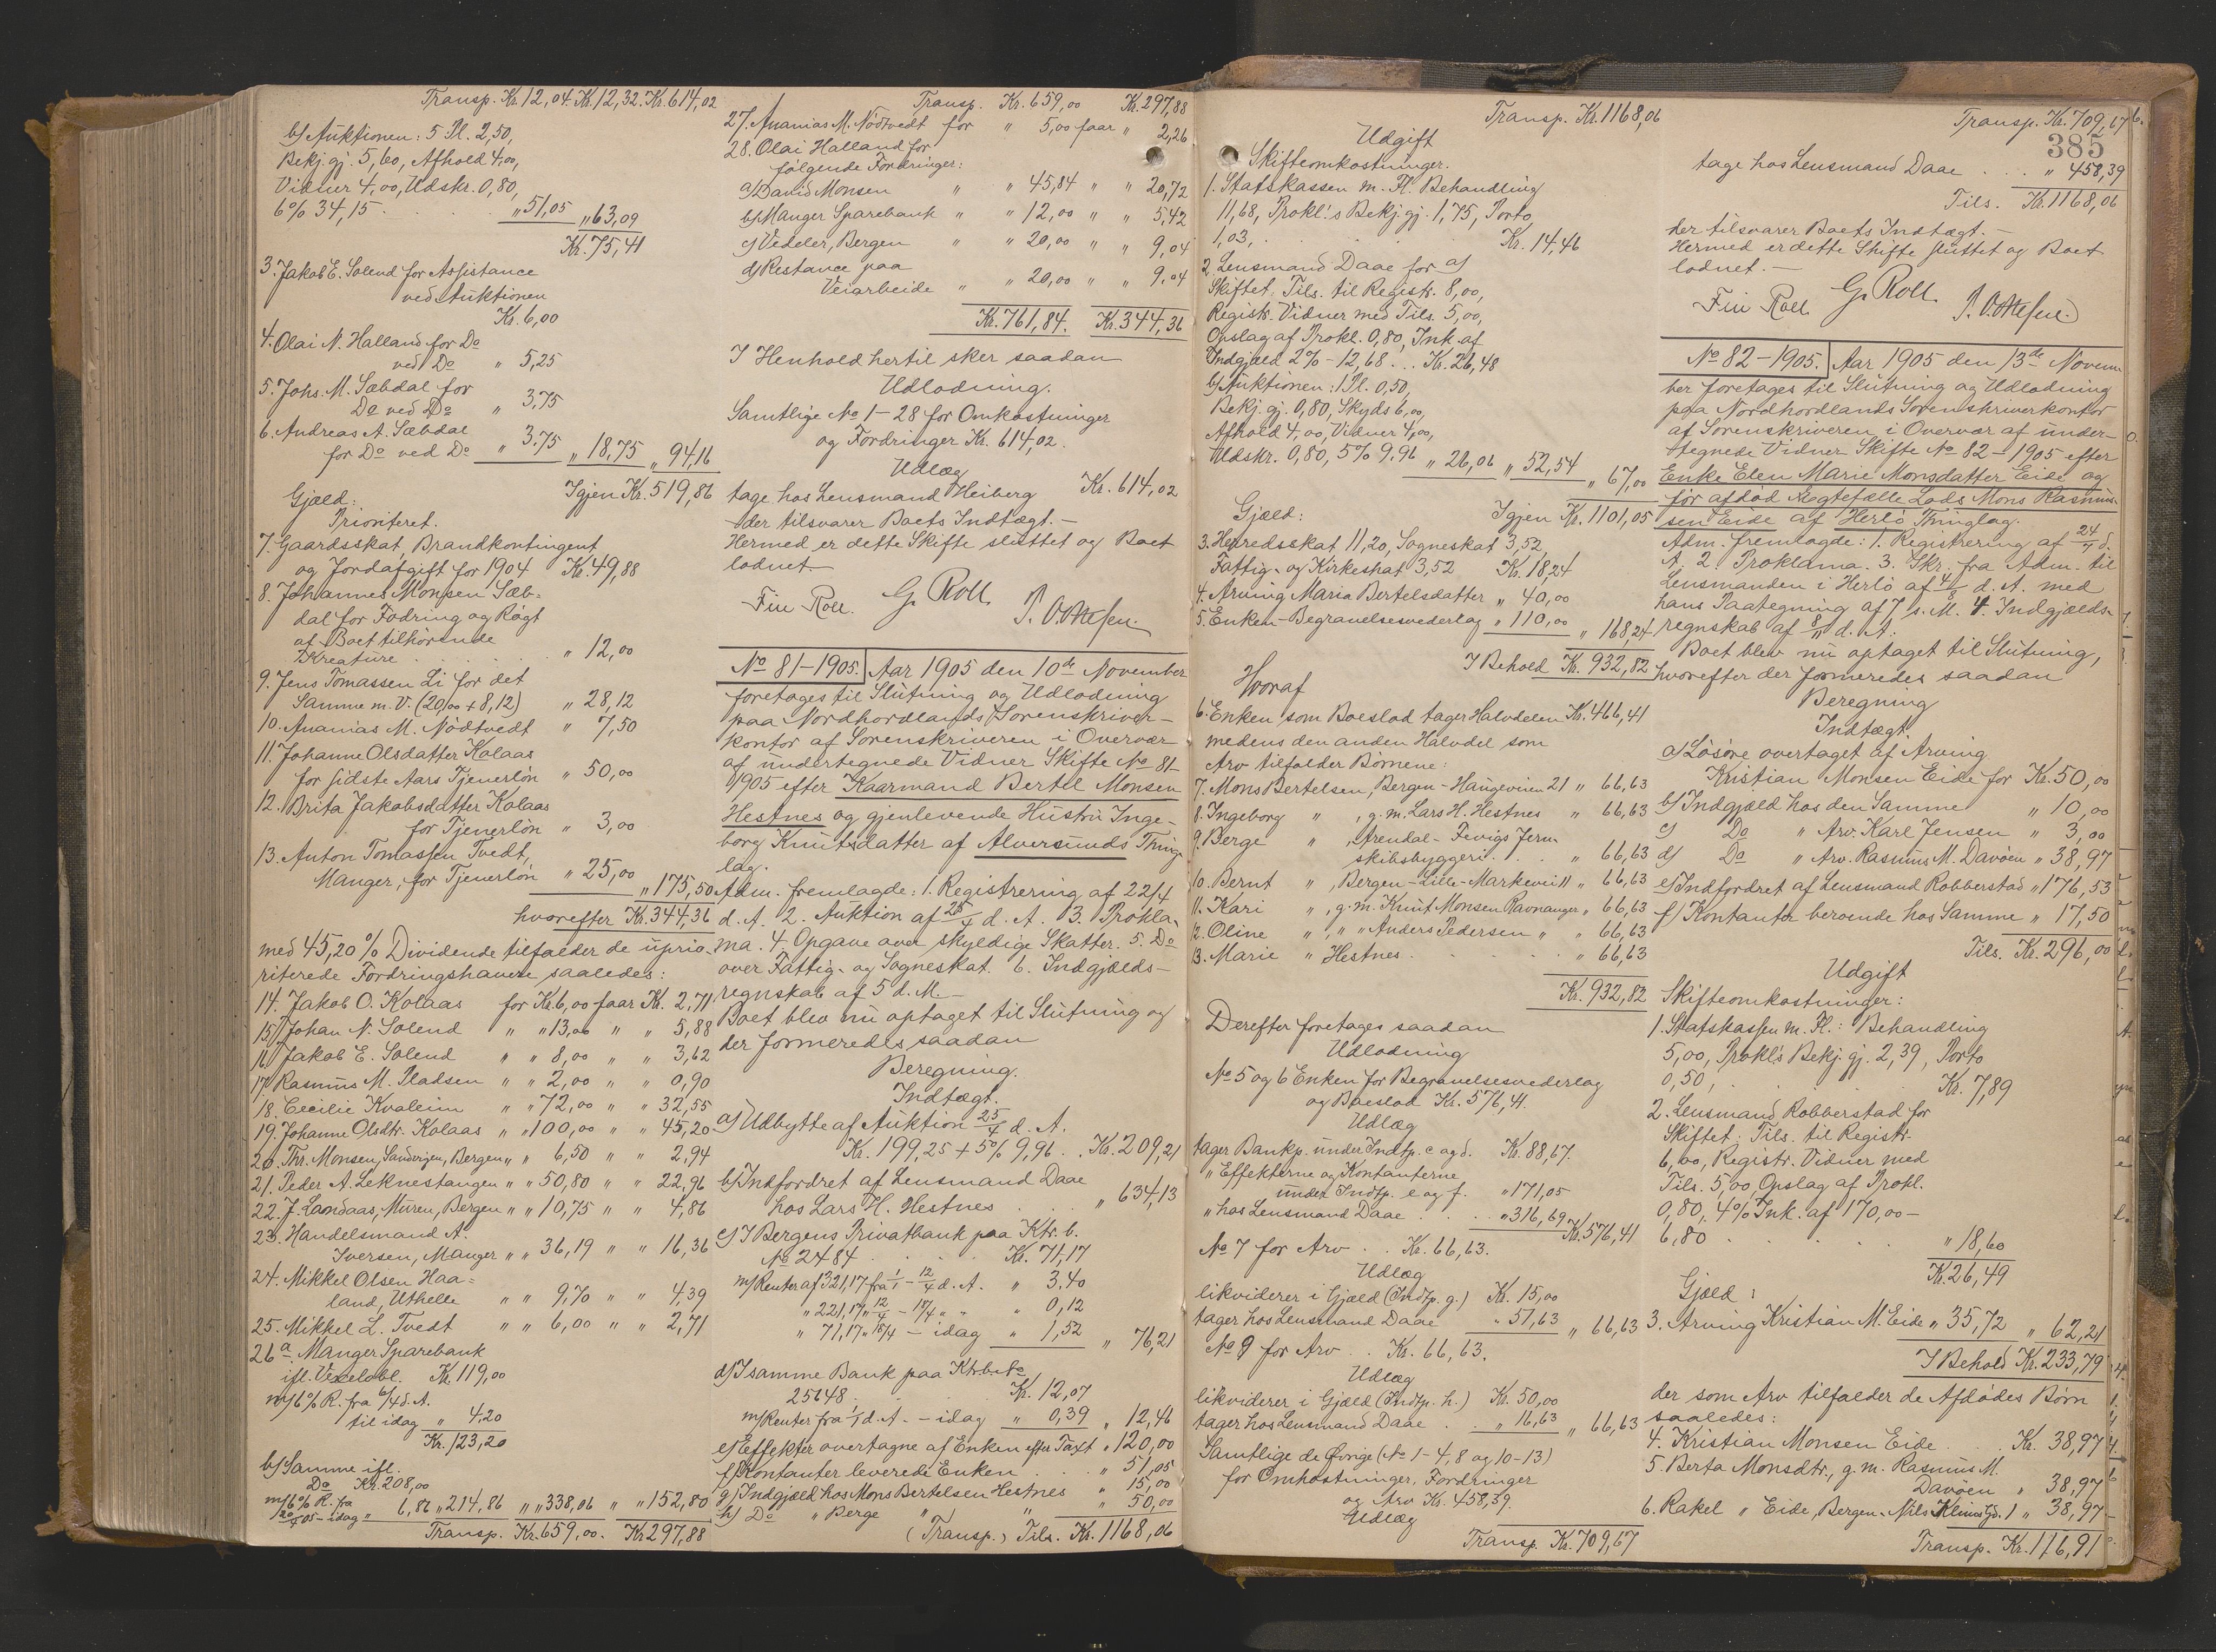 Transp. Kr. 12,04. Kr. 12,32. Kr. 614,02
b) Auktionen: 5 Pl. 2,50,
Bekj. gj. 5,60, Afhold 4,00,
Vidner 4,00, Udskr. 0,80,
6% 34,15 . . . „ 51,05 „ 63,09
Kr. 75,41
3. Jakob E. Solend for Assistance
ved Auktionen
Kr. 6,00
4. Olai N. Halland for Do
ved Do „ 5,25
5. Johs. M. Sæbdal for
Do ved Do „ 3,75
6. Andreas A. Sæbdal
for Do ved Do „ 3,75 „ 18,75 „ 94,16
Igjen Kr. 519,86
Gjæld:
Prioriteret.
7. Gaardsskat, Brandkontingent
og Jordafgift for 1904 Kr. 49,88
8. Johannes Monsen Sæb=
dal for Fodring og Røgt
af Boet tilhørende
Kreature . . . . „ 12,00
9. Jens Tomassen Li for det
Samme m. V. (20,00 + 8,12) „ 28,12
10. Ananias M. Nödtvedt „ 7,50
11. Johanne Olsdatter Kolaas
for sidste Aars Tjenerlön „ 50,00
12. Brita Jakobsdatter Kolaas
for Tjenerlön „ 3,00
13. Anton Tomassen Tvedt,
Manger, for Tjenerlön „ 25,00
„ 175,50
hvorefter Kr. 344,36
med 45,20% Dividende tilfalder de uprio-
riterede Fordringshavere saaledes:
14. Jakob O. Kolaas for Kr. 6,00 faar Kr. 2,71
15. Johan N. Solend „ „ 13,00 „ „ 5,88
16. Jakob E. Solend „ „ 8,00 „ „ 3,62
17. Rasmus M. Pladsen „ „ 2,00 „ „ 0,90
18. Cecilie Kvaleim „ „ 72,00 „ „ 32,55
19. Johanne Olsdtr. Kolaas „ „ 100,00 „ „ 45,20
20. Thr. Monsen, Sandvigen, Bergen „ „ 6,50 „ „ 2,94
21. Peder A. Leknestangen „ „ 50,80 „ „ 22,96
22. J. Landaas, Muren, Bergen „ „ 10,75 „ „ 4,86
23. Handelsmand A.
Iversen, Manger „ „ 36,19 „ „ 16,36
24. Mikkel Olsen Haa=
land, Uthelle „ „ 9,70 „ „ 4,39
25. Mikkel L. Tvedt „ „ 6,00 „ „ 2,71
26 a Manger Sparebank
ifl. Vexelobl. Kr. 119,00
m/6% R. fra 6/4 d. A.
til idag „ 4,20
Kr. 123,20
b) Samme ifl.
Do Kr. 208,00
m/6% R. fra
20/4 05 - idag „ 6,86 „ 214,86 „ „ 338,06 „ „ 152,80
Transp. Kr. 659,00. Kr. 297,88
Transp. Kr. 659,00 Kr. 297,88
27. Ananias M. Nödtvedt for „ 5,00 faar „ 2,26
28. Olai Halland for
følgende Fordringer:
a) David Monsen „ „ 45,84 „ „ 20,72
b) Manger Sparebank „ „ 12,00 „ „ 5,42
c) Vedeler, Bergen „ „ 20,00 „ „ 9,04
d) Restance paa
Veiarbeide „ „ 20,00 „ „ 9,04
Kr. 761,84. Kr. 344,36
I Henhold hertil sker saadan
Udlodning.
Samtlige No 1-28 for Omkostninger
og Fordringer Kr. 614,02.
Udlæg
tage hos Lensmand Heiberg Kr. 614,02
der tilsvarer Boets Indtægt. -
Hermed er dette Skifte sluttet og Boet
lodnet. -
Fin Roll. G. Roll. P. Ottesen.
No 81-1905. Aar 1905 den 10de November
foretages til Slutning og Udlodning
paa Nordhordlands Sorenskriver-
kontor af Sorenskriveren i Overvær
af undertegnede Vidner Skifte No 81-
1905 efter Kaarmand Bertel Monsen
Hestnes og gjenlevende Hustru Inge-
borg Knutsdatter af Alversunds Thing
lag.
Adm. fremlagde: 1. Registrering af 22/4
d. A. 2. Auktion af 25/4 d. A. 3. Prokla-
ma. 4. Opgave over skyldige Skatter. 5. Do
over Fattig- og Sogneskat. 6. Indgjælds-
regnskab af 5 d. M. -
Boet blev nu optaget til Slutning og
der formeredes saadan
Beregning.
Indtægt.
a) Udbytte af Auktion 25/4 d. A.
Kr. 199,25 + 5% 9,96 . . Kr. 209,21
b) Indfordret af Lensmand Daae
hos Lars H. Hestnes . . „ 634,13
c) I Bergens Privatbank paa Ktr. b.
No 2484 . . . Kr. 71,17
m/Renter af 321,17 fra 1/1 - 12/4 d. A. „ 3,40
„ 221,17 „ 12/4 - 18/4 „ „ „ 0,12
„ 71,17 „ 18/4 - idag „ 1,52 „ 76,21
d) I samme Bank paa Ktr. b. No
25648 . . . Kr. 12,07
m/Renter fra 1/1 d. A. - idag „ 0,39 „ 12,46
e) Effekter overtagne af Enken efter Taxt „ 120,00
f) Kontanter leverede Enken . . . „ 51,05
g) Indgjæld hos Mons Bertelsen Hestnes „ 15,00
h) Do „ Berge „ „ „ 50,00
(Transp.) Tils. Kr. 1168,06
Transp. Kr. 1168,06
Udgift
Skifteomkostninger.
1. Statskassen m. Fl. Behandling
11,68, Prokl.'s Bekj. gj. 1,75, Porto
1,03, . . . Kr. 14,46
2. Lensmand Daae for a)
Skiftet. Tils. til Registr. 8,00,
Registr. Vidner med Tils. 5,00,
Opslag af Prokl. 0,80, Ink. af
Indgjæld 2% - 12,68 . . . Kr. 26,48
b) Auktionen: 1 Pl. 0,50,
Bekj. gj. 0,80, Skyds 6,00,
Afhold 4,00, Vidner 4,00,
Udskr. 0,80, 5% 9,96 „ 26,06 „ 52,54 „ 67,00
Igjen Kr. 1101,05
Gjæld:
3. Herredsskat 11,20, Sogneskat 3,52,
Fattig- og Kirkeskat 3,52 Kr. 18,24
4. Arving Maria Bertelsdatter „ 40,00
5. Enken Begravelsesvederlag „ 110,00 „ 168,24
I Behold Kr. 932,82
Hvoraf
6. Enken som Boeslod tager Halvdelen Kr. 466,41
medens den anden Halvdel som
Arv tilfalder Börnene:
7. Mons Bertelsen, Bergen - Haugeveien 21 „ 66,63
8. Ingeborg „ , g. m. Lars H. Hestnes „ 66,63
9. Berge „ , Arendal - Fevigs Jern
skibsbyggeri . . . „ 66,63
10. Bernt „ , Bergen - Lille-Markevei 11 „ 66,63
11. Kari „ , g. m. Knut Monsen Ravnanger „ 66,63
12. Oline „ , „ „ Anders Pedersen „ „ 66,63
13. Marie „ Hestnes . . . . „ 66,63
Kr. 932,82
Derefter foretages saadan
Udlodning
No 5 og 6 Enken for Begravelsesvederlag
og Boeslod Kr. 576,41.
Udlæg
tager Bankp. under Indtp. c og d. Kr. 88,67.
„ Effekterne og Kontanterne
under Indtp. e og f. „ 171,05
„ hos Lensmand Daae . . . „ 316,69 Kr. 576,41
No 7 for Arv . . Kr. 66,63.
Udlæg
likviderer i Gjæld (Indtp. g.) Kr. 15,00
tager hos Lensmand Daae „ 51,63 „ 66,63
No 9 for Arv . . Kr. 66,63.
Udlæg
likviderer i Gjæld (Indtp. h.) Kr. 50,00
tager hos Lensmand Daae . „ 16,63 „ 66,63
Samtlige de Øvrige (No 1-4, 8 og 10-13)
for Omkostninger, Fordringer
og Arv Kr. 458,39.
Udlæg
Transp. Kr. 709,67
Transp. Kr. 709,67
385
tage hos Lensmand Daae . . . „ 458,39
Tils. Kr. 1168,06
der tilsvarer Boets Indtægt. -
Hermed er dette Skifte sluttet og Boet
lodnet. -
Fin Roll. G. Roll. P. Ottesen.
No 82-1905. Aar 1905 den 13de Novem-
ber foretages til Slutning og Udlodning
paa Nordhordlands Sorenskriverkontor
af Sorenskriveren i Overvær af under-
tegnede Vidner Skifte No 82-1905 efter
Enke Elen Marie Monsdatter Eide og
för afdöd Ægtefælle Lods Mons Rasmus-
sen Eide af Herlö Thinglag.
Adm. fremlagde: 1. Registrering af 24/7 d.
A. 2. Proklama. 3. Skr. fra Adm. til
Lensmanden i Herlö af 4/8 d. A. med
hans Paategning af 7 s. M. 4. Indgjælds-
regnskab af 8/11 d. A.
Boet blev nu optaget til Slutning,
hvorefter der formeredes saadan
Beregning
Indtægt.
a) Lösöre overtaget af Arving
Kristian Monsen Eide for Kr. 50,00
b) Indgjæld hos den Samme „ 10,00
c) Do „ Arv. Karl Jensen „ 3,00
d) Do „ Arv. Rasmus M. Davöen „ 38,97
e) Indfordret af Lensmand Robberstad „ 176,53
f) Kontanter beroende hos Samme „ 17,50
Tils. Kr. 296,00
Udgift
Skifteomkostninger:
1. Statskassen m. Fl.: Behandling
5,00, Prokl.s Bekj. gj. 2,39, Porto
0,50, . . . Kr. 7,89
2. Lensmand Robberstad for
Skiftet: Tils. til Registr.
6,00, Registr. Vidner med
Tils. 5,00 Opslag af Prokl.
0,80, 4% Ink. af 170,00 -
6,80 . . . „ 18,60
Kr. 26,49
Gjæld:
3. Arving Kristian M. Eide „ 35,72 „ 62,21
I Behold Kr. 233,79
der som Arv tilfalder de Afdödes Børn
saaledes:
4. Kristian Monsen Eide . . Kr. 38,97
5. Berta Monsdtr., g. m. Rasmus M.
Davöen „ 38,97
6. Rakel „ Eide, Bergen - Nils Klims Gd. 1 „ 38,97
Transp. Kr. 116,91